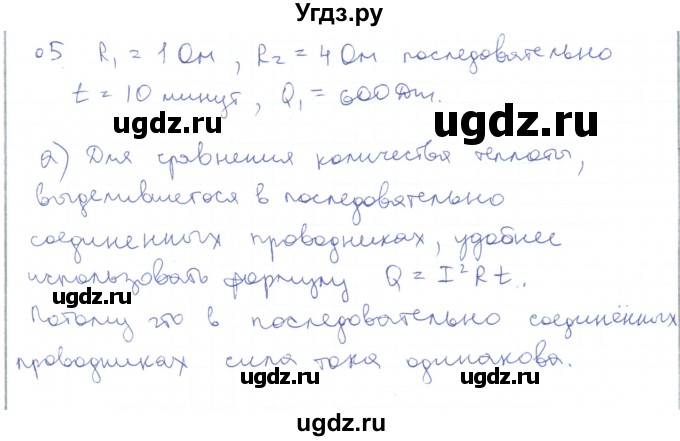 Угдз.ру
о5 R₁ = 1 Ом, R₂ = 4 Ом последовательно
t = 10 минут, Q₁ = 600 Дж.
ugdz.ru ugdz.ru
а) Для сравнения количества теплоты,
выделившегося в последовательно
соединенных проводниках, удобнее
использовать формулу Q = I²Rt.
ugdz.ru ugdz.ru
Потому что в последовательно соединённых
проводниках сила тока одинакова.
ugdz.ru ugdz.ru
ugdz.ru